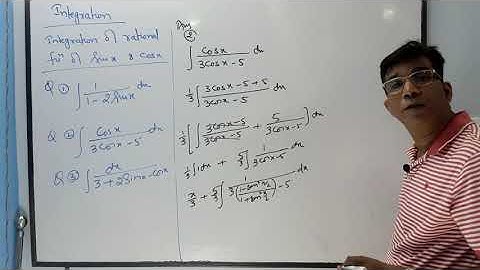 Integration
Integration of rational
fn of sinx & cosx
Q ① ∫ 1/(1-2sinx) dx
Q ② ∫ cosx/(3cosx-5) dx
Q ③ ∫ dx/(3+2sinx-cosx)
②
∫ cosx/(3cosx-5) dx
1/3 ∫ (3cosx-5+5)/(3cosx-5) dx
1/3 [∫ (3cosx-5)/(3cosx-5) + 5/(3cosx-5)] dx
1/3 ∫ 1dx + 5/3 ∫ 1/(3cosx-5) dx
x/3 + 5/3 ∫ 1/(3((1-tan²x/2)/(1+tan²x/2))-5) dx